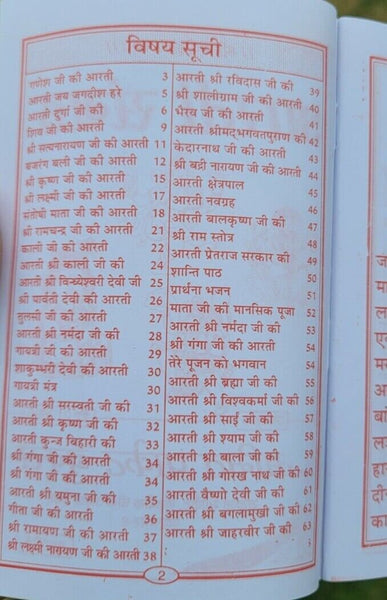 विषय सूची
गणेश जी की आरती 3
आरती जय जगदीश हरे 5
आरती दुर्गा जी की 6
शिव जी की आरती 9
श्री सत्यनारायण जी की आरती 11
बजरंग बली जी की आरती 12
श्री कृष्ण जी की आरती 15
श्री लक्ष्मी जी की आरती 17
संतोषी माता जी की आरती 18
श्री रामचन्द्र जी की आरती 21
काली जी की आरती 22
आरती श्री काली जी की 24
आरती श्री विन्ध्येश्वरी देवी जी 25
श्री पार्वती देवी की आरती 26
तुलसी जी की आरती 27
आरती श्री नर्मदा जी की 28
गायत्री जी की आरती 29
शाकुम्भरी देवी की आरती 30
गायत्री मंत्र 30
आरती श्री सरस्वती जी की 31
आरती श्री कृष्ण जी की 32
आरती कुन्ज बिहारी की 33
श्री गंगा जी की आरती 34
श्री गंगा जी की आरती 34
आरती श्री यमुना जी की 35
गीता जी की आरती 36
श्री रामायण जी की आरती 37
श्री लक्ष्मी नारायण जी की आरती 38
आरती श्री रविदास जी की 39
श्री शालीग्राम जी की आरती 40
भैरव जी की आरती 41
आरती श्रीमद्भगवतपुराण की 42
केदारनाथ जी की आरती 43
श्री बद्री नारायण जी की आरती 44
आरती क्षेत्रपाल 45
आरती नवग्रह 46
आरती बालकृष्ण जी की 47
श्री राम स्तोत्र 48
आरती प्रेतराज सरकार की 49
शान्ति पाठ 50
प्रार्थना भजन 51
माता जी की मानसिक पूजा 52
आरती श्री नर्मदा जी की 53
श्री गंगा जी की आरती 54
तेरे पूजन को भगवान 54
आरती श्री ब्रह्मा जी की 55
आरती श्री विश्वकर्मा जी की 56
आरती श्री साई जी की 57
आरती श्री श्याम जी की 58
आरती श्री बाला जी की 59
आरती श्री गोरख नाथ जी की 60
आरती वैष्णो देवी जी की 61
आरती श्री बगलामुखी जी की 62
आरती श्री जाहरवीर जी की 63
2